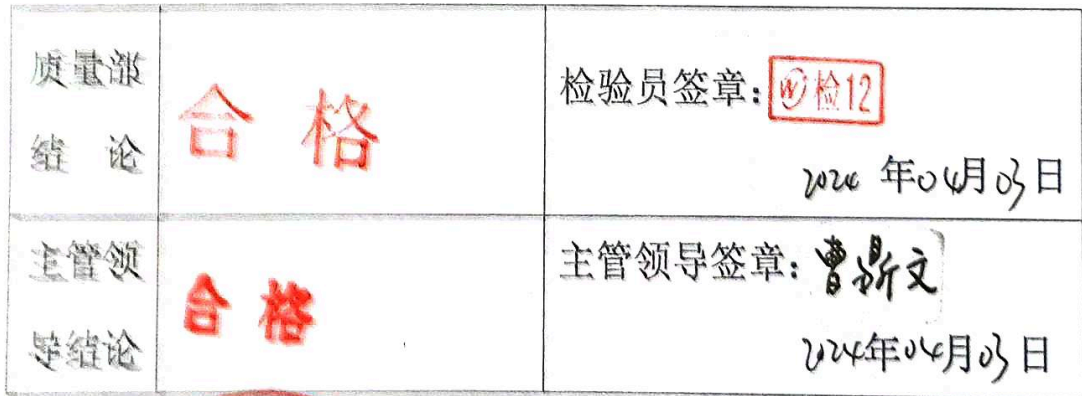 质量部
结 论
合 格
检验员签章：检12
2024 年04月03日
主管领
导结论
合 格
主管领导签章：曹鼎文
2024年04月03日